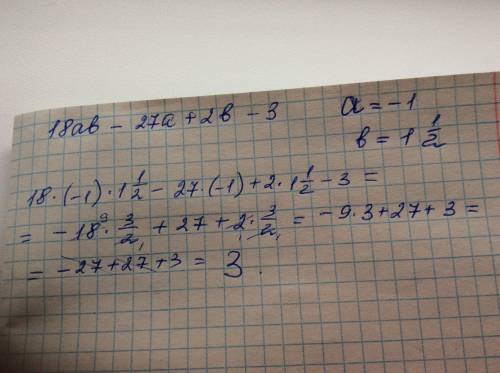 18ab - 27a + 2b - 3 a = -1
b = 1 1/2
18·(-1)·1 1/2 - 27·(-1) + 2·1 1/2 - 3 =
= -18·3/2 + 27 + 2·3/2 = -9·3 + 27 + 3 =
= -27 + 27 + 3 = 3.